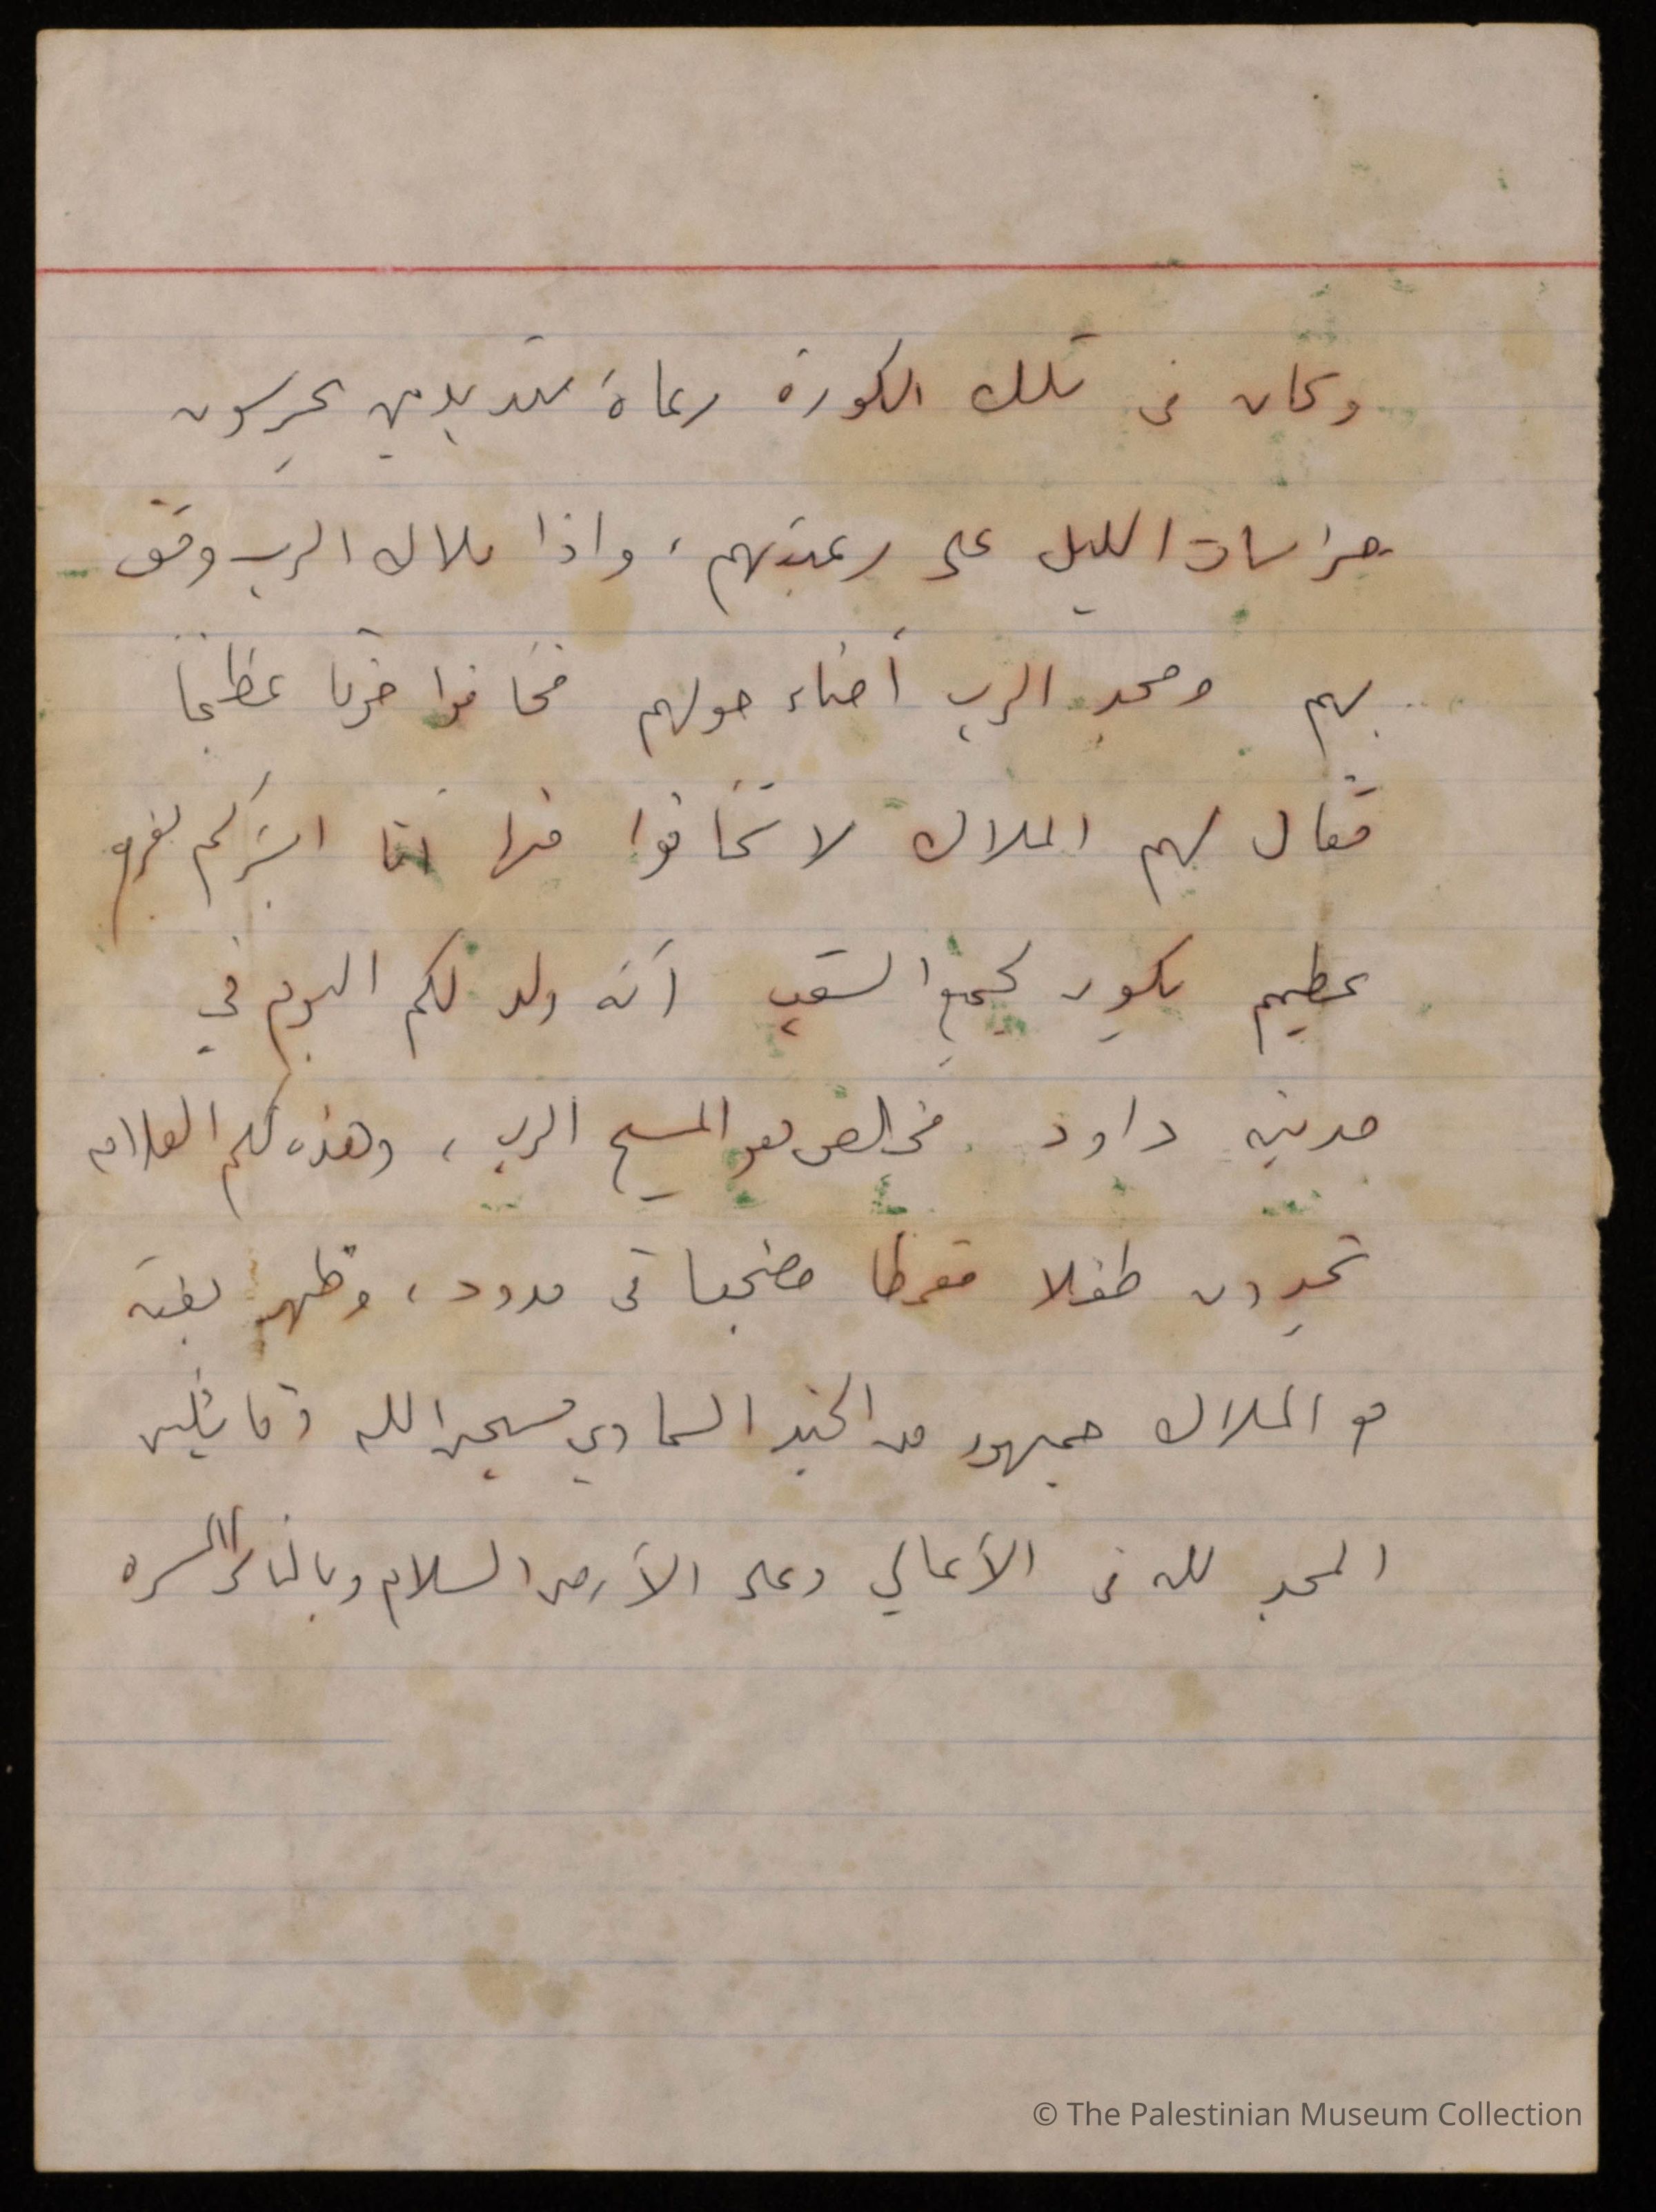 وكان في تلك الكورة رعاة متبدين يحرسون
حراسات الليل على رعيتهم، واذا ملاك الرب وقف
بهم ومجد الرب أضاء حولهم فخافوا خوفا عظيما
فقال لهم الملاك لا تخافوا فها انا ابشركم بفرح
عظيم يكون لجميع الشعب أنه ولد لكم اليوم في
مدينة داود مخلص هو المسيح الرب، وهذه لكم العلامه
تجدون طفلا مقمطا مضجعا في مدود، وظهر بغته
مع الملاك جمهور من الجند السماوي مسبحين الله وقائلين
المجد لله في الأعالي وعلى الأرض السلام وبالناس المسره
© The Palestinian Museum Collection